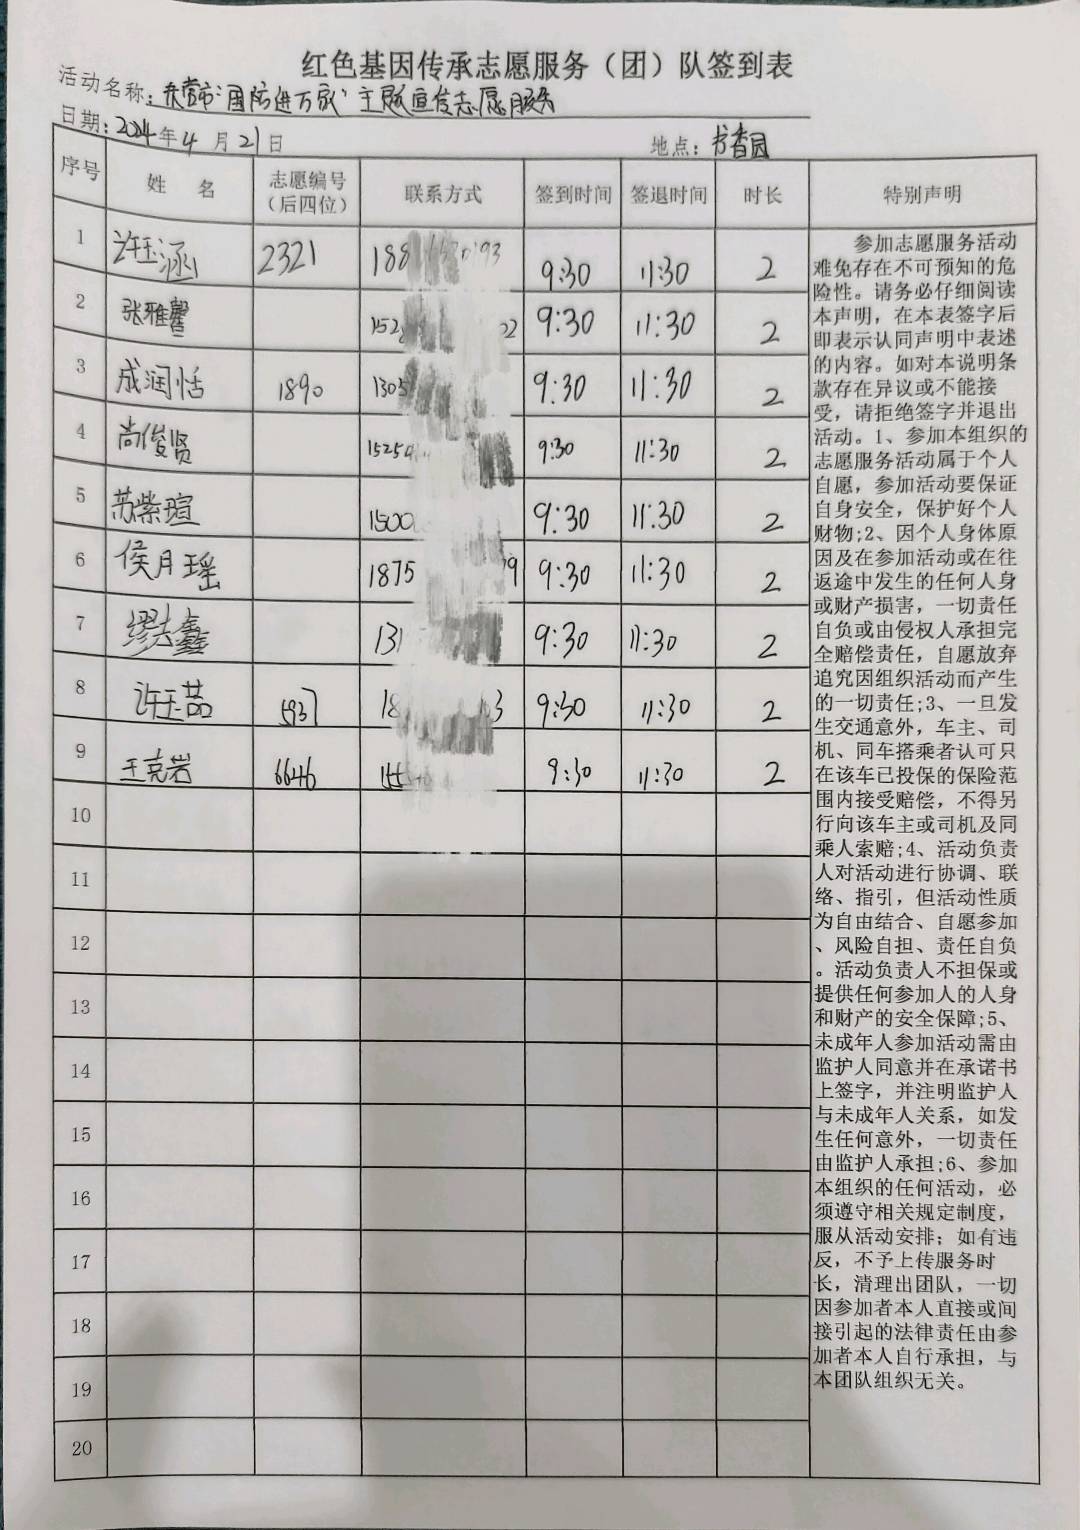 红色基因传承志愿服务（团）队签到表
活动名称：东营市“国防进万家”主题宣传志愿服务
日期：2024年4月21日 地点：书香园
序号 姓名 志愿编号（后四位） 联系方式 签到时间 签退时间 时长 特别声明
1 许玉涵 2321 188 93 9:30 11:30 2
2 张雅馨 152 22 9:30 11:30 2
3 成润恬 1890 1305 9:30 11:30 2
4 尚俊贤 15254 9:30 11:30 2
5 苏紫瑄 1500 9:30 11:30 2
6 侯月瑶 1875 9 9:30 11:30 2
7 缪志鑫 131 9:30 11:30 2
8 许玉喆 5937 18 3 9:30 11:30 2
9 王克岩 6646 155 9:30 11:30 2
10
11
12
13
14
15
16
17
18
19
20
参加志愿服务活动
难免存在不可预知的危
险性。请务必仔细阅读
本声明，在本表签字后
即表示认同声明中表述
的内容。如对本说明条
款存在异议或不能接
受，请拒绝签字并退出
活动。1、参加本组织的
志愿服务活动属于个人
自愿，参加活动要保证
自身安全，保护好个人
财物;2、因个人身体原
因及在参加活动或在往
返途中发生的任何人身
或财产损害，一切责任
自负或由侵权人承担完
全赔偿责任，自愿放弃
追究因组织活动而产生
的一切责任;3、一旦发
生交通意外，车主、司
机、同车搭乘者认可只
在该车已投保的保险范
围内接受赔偿，不得另
行向该车主或司机及同
乘人索赔;4、活动负责
人对活动进行协调、联
络、指引，但活动性质
为自由结合、自愿参加
、风险自担、责任自负
。活动负责人不担保或
提供任何参加人的人身
和财产的安全保障;5、
未成年人参加活动需由
监护人同意并在承诺书
上签字，并注明监护人
与未成年人关系，如发
生任何意外，一切责任
由监护人承担;6、参加
本组织的任何活动，必
须遵守相关规定制度，
服从活动安排；如有违
反，不予上传服务时
长，清理出团队，一切
因参加者本人直接或间
接引起的法律责任由参
加者本人自行承担，与
本团队组织无关。